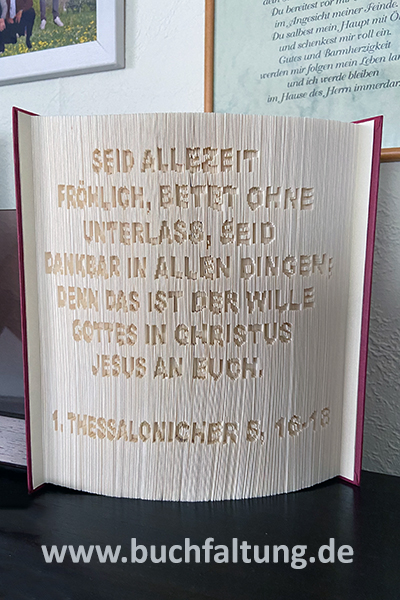 Du bereitest vor mir
im Angesicht meiner Feinde.
Du salbest mein Haupt mit Öl
und schenkest mir voll ein.
Gutes und Barmherzigkeit
werden mir folgen mein Leben lang
und ich werde bleiben
im Hause des Herrn immerdar.
SEID ALLEZEIT
FRÖHLICH, BETET OHNE
UNTERLASS, SEID
DANKBAR IN ALLEN DINGEN;
DENN DAS IST DER WILLE
GOTTES IN CHRISTUS
JESUS AN EUCH.
1. THESSALONICHER 5: 16-18
www.buchfaltung.de